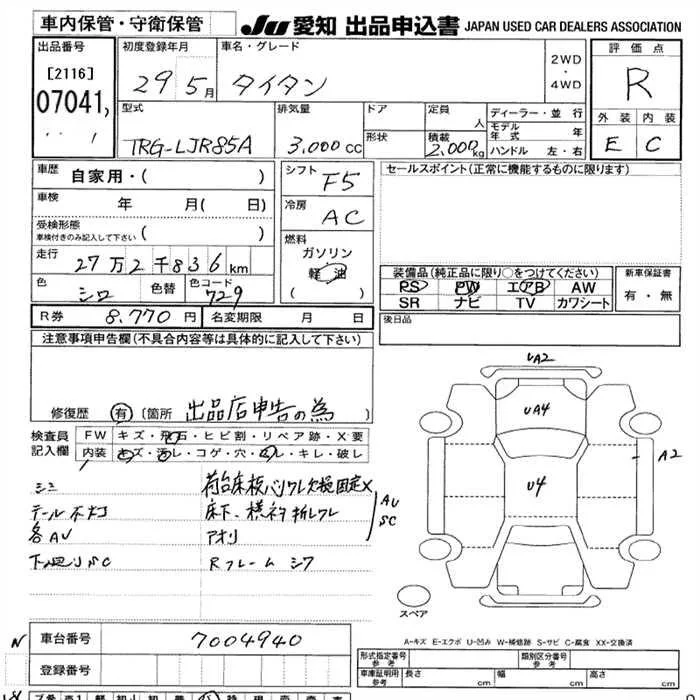 車内保管・守衛保管
JU 愛知 出品申込書 JAPAN USED CAR DEALERS ASSOCIATION
出品番号
[2116]
07041,
初度登録年月
29年5月
車名・グレード
タイタン
2WD
・
4WD
評価点
R
外装 内装
E C
型式
TRG-LJR85A
排気量
3,000cc
ドア
形状
定員
人
積載
2,000kg
ディーラー・並行
モデル年式 年
ハンドル 左・右
車歴 自家用・( )
車検 年 月( 日)
受検形態
車検付きのみ記入して下さい ( )
走行 27万2千836km
色 シロ 色替 色コード 729
シフト F5
冷房 AC
燃料
ガソリン
軽油
( )
セールスポイント(正常に機能するものに限ります)
装備品(純正品に限り○をつけてください)
PS PW エアB AW
SR ナビ TV カワシート
新車保証書
有・無
R券 8,770円 名変期限 月 日
後日品
注意事項申告欄(不具合内容等は具体的に記入して下さい)
修復歴 有 [箇所 出品店申告の為 ]
検査員記入欄
FW キズ・飛石・ヒビ割・リペア跡・X要
内装 キズ・汚レ・コゲ・穴・スレ・キレ・破レ
テール不灯
各AU
荷台床板バリワレ欠損固定X
アオリ
Rフレーム シワ
AU
SC
UA2
UA4
U4
A2
スペア
A-キズ E-エクボ U-凹み W-補修跡 S-サビ C-腐食 XX-交換済
N
車台番号 7004940
登録番号
形式指定番号 参考
類別区分番号 参考
車庫証明用 参考 長さ cm 幅 cm 高さ cm